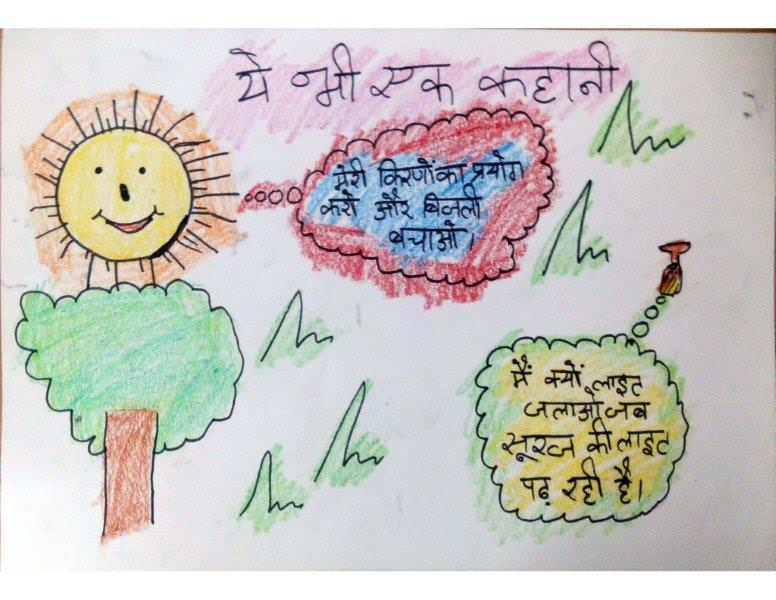 ये भी एक कहानी
मेरी किरणों का प्रयोग
करो और बिजली
बचाओ।
मैं क्यों लाइट
जलाओ जब
सूरज की लाइट
पढ़ रही है।